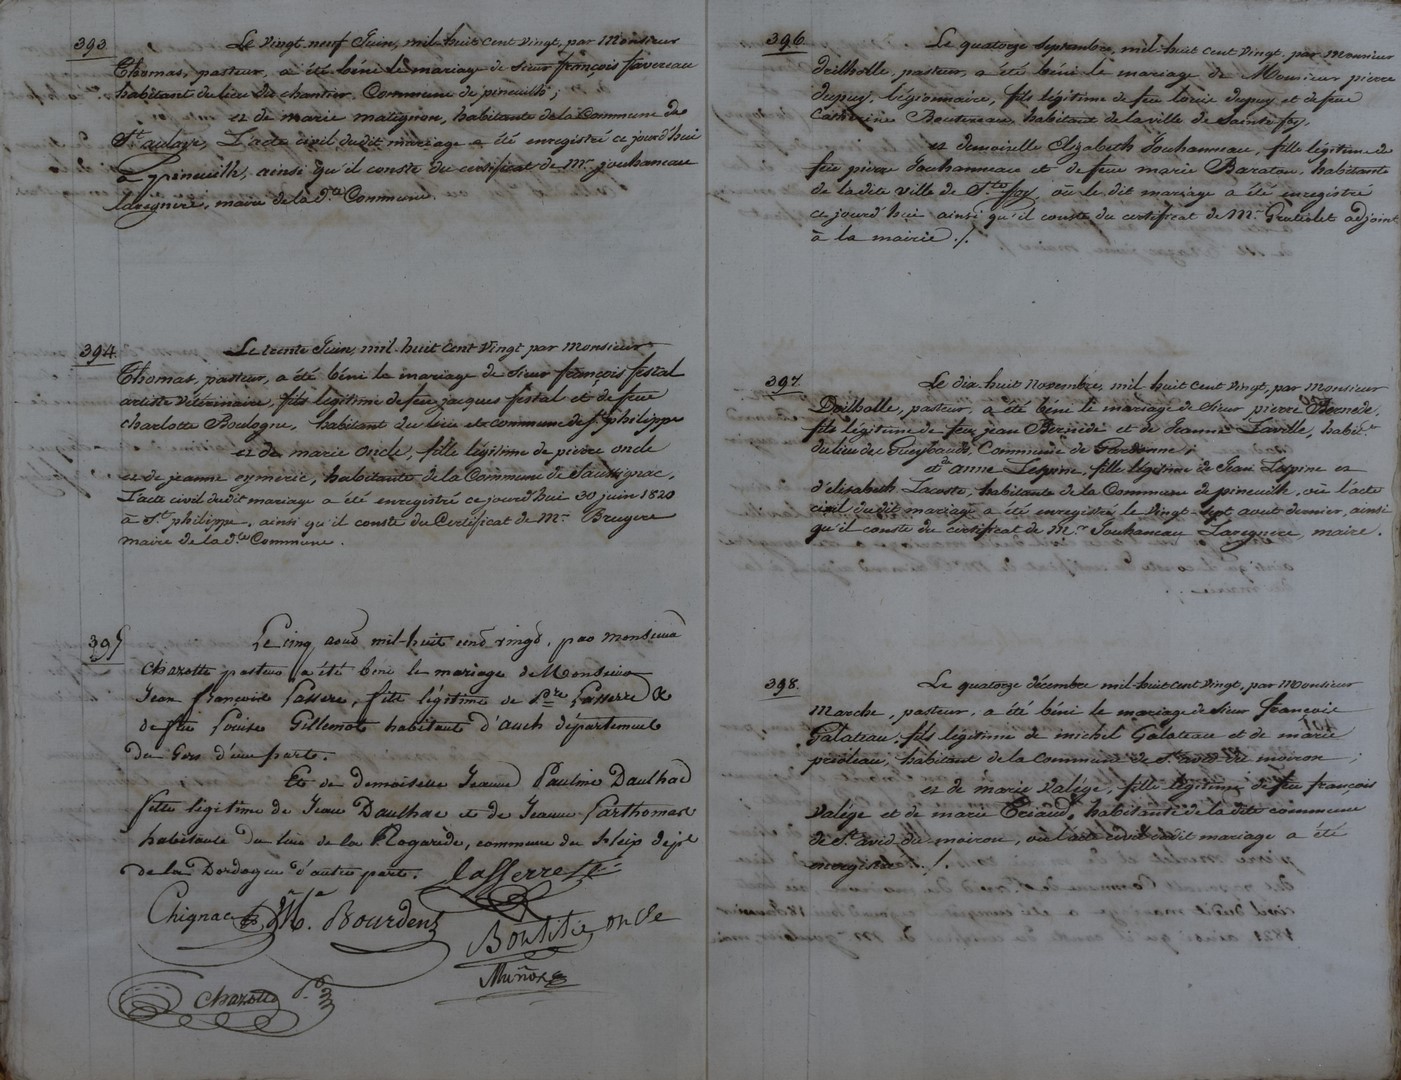 393 Le vingt neuf Juin, mil-huit cent vingt, par Monsieur
Thomas, pasteur, a été béni le mariage de sieur françois favereau
habitant du lieu du chantier, Commune de pineuilh;
et de marie matignon, habitante de la Commune de
St aulaye, L'acte civil dudit mariage a été enregistré ce jourd'hui
à pineuilh, ainsi qu'il conste du certificat de Mr. jouhaneau
laregnere, maire de la d.te Commune.
394 Le trente Juin, mil-huit cent vingt par Monsieur
Thomas, pasteur, a été béni le mariage de sieur françois festal
artiste vétérinaire, fils légitime de feu jacques festal et de feue
charlotte Boulogne, habitant du lieu et commune de St philippe
et de marie oncle, fille légitime de pierre oncle
et de jeanne eymeric, habitante de la Commune de Saussignac,
L'acte civil dudit mariage a été enregistré ce jourd'hui 30 juin 1820
à St philippe, ainsi qu'il conste du Certificat de Mr. Bruyere
maire de la d.te Commune.
395 Le cinq août mil-huit cent vingt, par Monsieur
Chazotte pasteur a été béni le mariage de Monsieur
Jean françois Lasserre, fils légitime de Lasserre &
de feue Louise Gillemot habitant d'auch département
du Gers d'une part.
Et de demoiselle Jeanne Pauline Daulhac
fille légitime de Jean Daulhac et de Jeanne Parthomas
habitante du lieu de la Rogarède, commune du fleix dépt
de la Dordogne d'autre part. Lasserre
Chignac Bourdens
oncle
Muñoz
Chazotte pr
396 Le quatorze septembre, mil-huit cent vingt, par monsieur
Deilholle, pasteur, a été béni le mariage de Monsieur pierre
dupuy, légionnaire, fils légitime de feu louis dupuy et de feue
Catherine Boutereau, habitant de la ville de Sainte foy,
et demoiselle Elizabeth Jouhanneau, fille légitime de
feu pierre Jouhanneau et de feue marie Baratou, habitante
de la dite ville de Ste foy, où le dit mariage a été enregistré
ce jourd'hui ainsi qu'il conste du certificat de Mr adjoint
à la mairie ./.
397 Le dix huit novembre, mil huit cent vingt, par Monsieur
Doilholle, pasteur, a été béni le mariage de sieur pierre Bernède,
fils légitime de feu jean Bernède et de Jeanne Laville, habit.t
du lieu de Commune de Gardonne;
et anne Lespine, fille légitime de Jean Lespine et
d'elisabeth Lacoste, habitante de la Commune de pineuilh, où l'acte
civil dudit mariage a été enregistré le vingt-sept août dernier, ainsi
qu'il conste du certificat de Mr Jouhaneau Laregnere, maire.
398 Le quatorze décembre mil-huit cent vingt, par Monsieur
Marche, pasteur, a été béni le mariage de sieur françois
Galateau, fils légitime de michel Galateau et de marie
prioleau, habitant de la commune de St avid du moiron;
et de marie valége, fille légitime de feu françois
valége et de marie Eriaud, habitante de la dite commune
de St avid du moiron, où l'acte civil dudit mariage a été
enregistré ./.